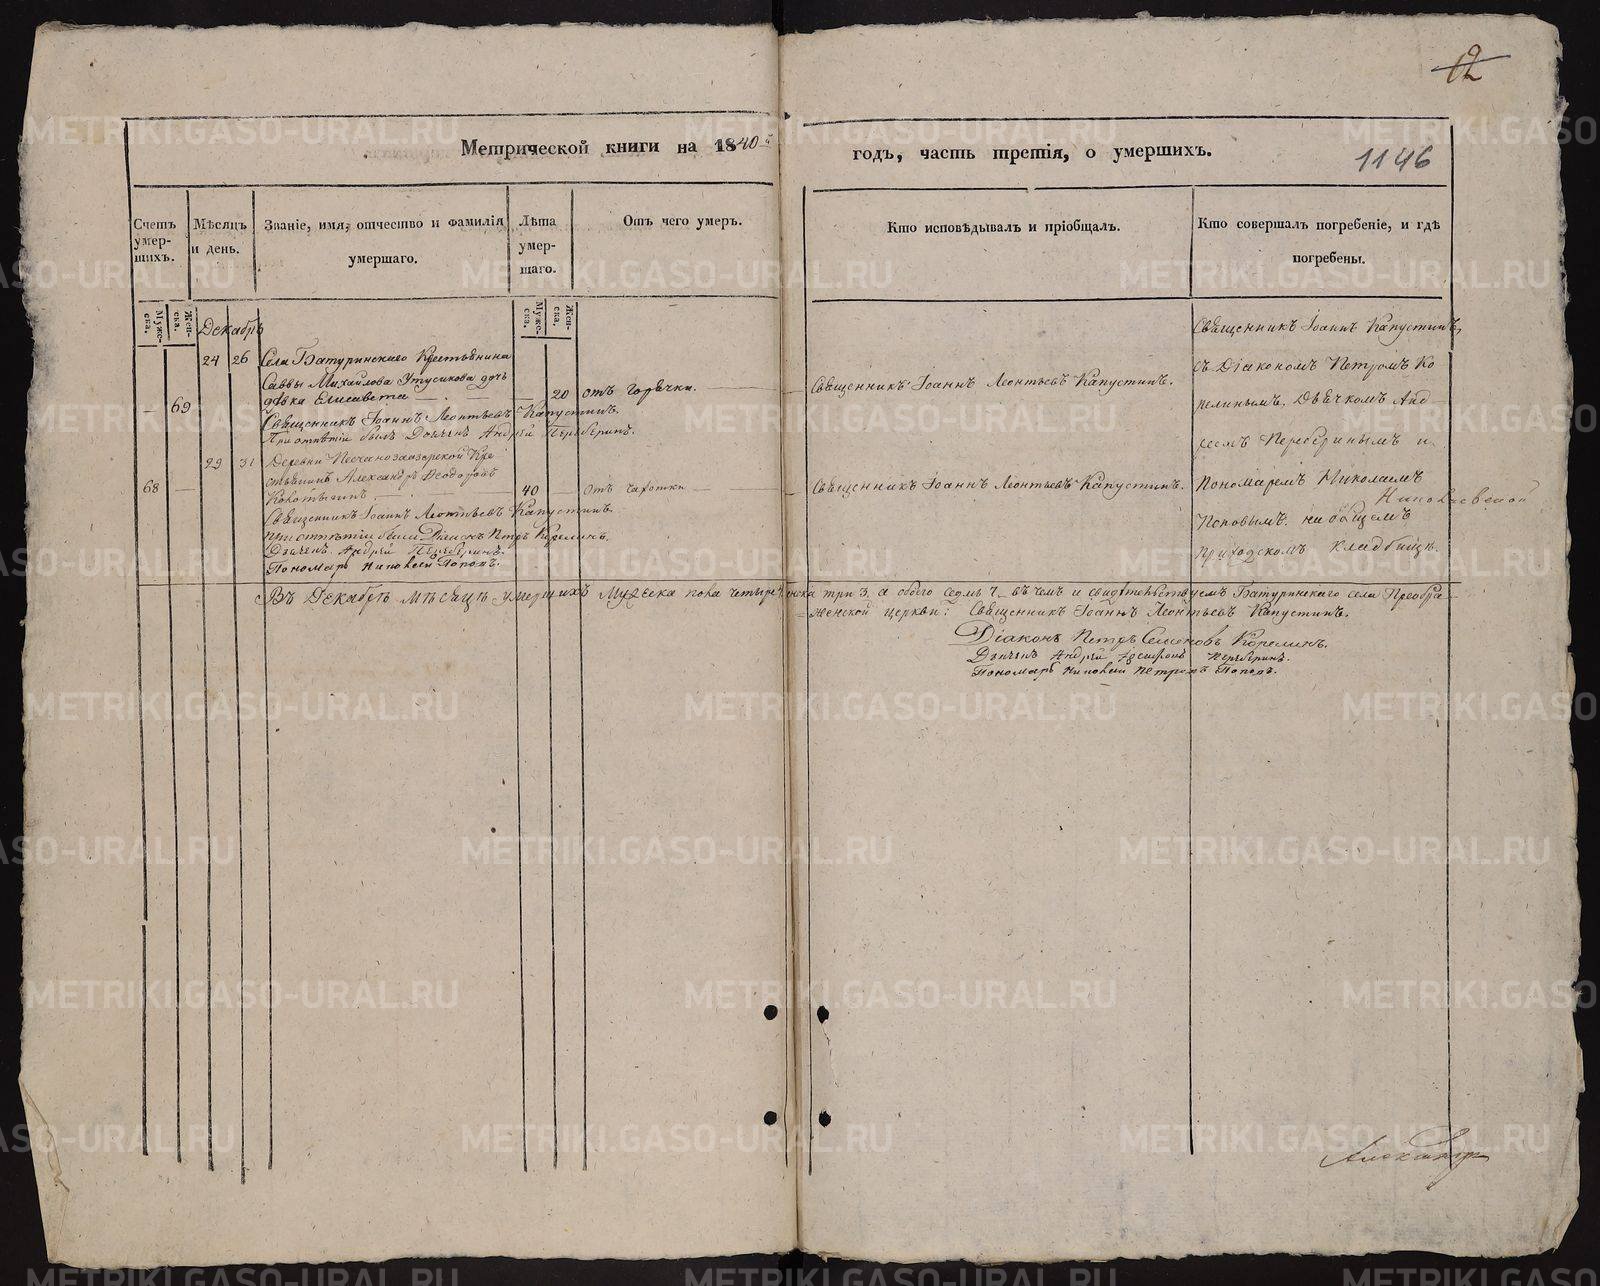 12
Метрической книги на 1840й годъ, часть третія, о умершихъ.
1146
Счетъ умер-шихъ.
Мѣсяцъ и день.
Званіе, имя, отчество и фамилія умершаго.
Лѣта умер-шаго.
Отъ чего умеръ.
Кто исповѣдывалъ и пріобщалъ.
Кто совершалъ погребеніе, и гдѣ погребены.
Муже-ска.
Жен-ска.
Муже-ска.
Жен-ска.
Декабрь
— 69
24 26
Села Батуринскаго Крестьянина
Саввы Михайлова Утусикова дочь
дѣвка Елисавета
— 20
отъ горячки.
Священникъ Іоаннъ Леонтьевъ Капустинъ.
Священникъ Іоаннъ Леонтьевъ Капустинъ.
При отпѣтіи былъ Дьячекъ Андрей Переберинъ.
68 —
29 31
Деревни Песчанозаозерской Кре
стьянинъ Александръ Ѳеодоровъ
40 —
отъ чахотки
Священникъ Іоаннъ Леонтьевъ Капустинъ.
Священникъ Іоаннъ Леонтьевъ Капустинъ.
при отпѣтіи были Діаконъ Петръ Корелинъ.
Дьячекъ Андрей Переберинъ.
Пономарь Николай Поповъ.
Священникъ Іоаннъ Капустинъ,
съ Діакономъ Петромъ Ко
релинымъ, Дьячкомъ Анд
реемъ Переберинымъ и
Пономаремъ Николаемъ
Поповымъ. на общемъ
приходскомъ кладбищѣ.
Въ Декабрѣ мѣсяцѣ умершихъ мужеска пола четыре женска три 3, а обоего седмь 7. въ чемъ и свидѣтельствуемъ Батуринскаго села Преобра
женской церкви: Священникъ Іоаннъ Леонтьевъ Капустинъ.
Діаконъ Петръ Семеновъ Корелинъ.
Дьячекъ Андрей Переберинъ.
Пономарь Николай Петровъ Поповъ.
Александръ
METRIKI.GASO-URAL.RU